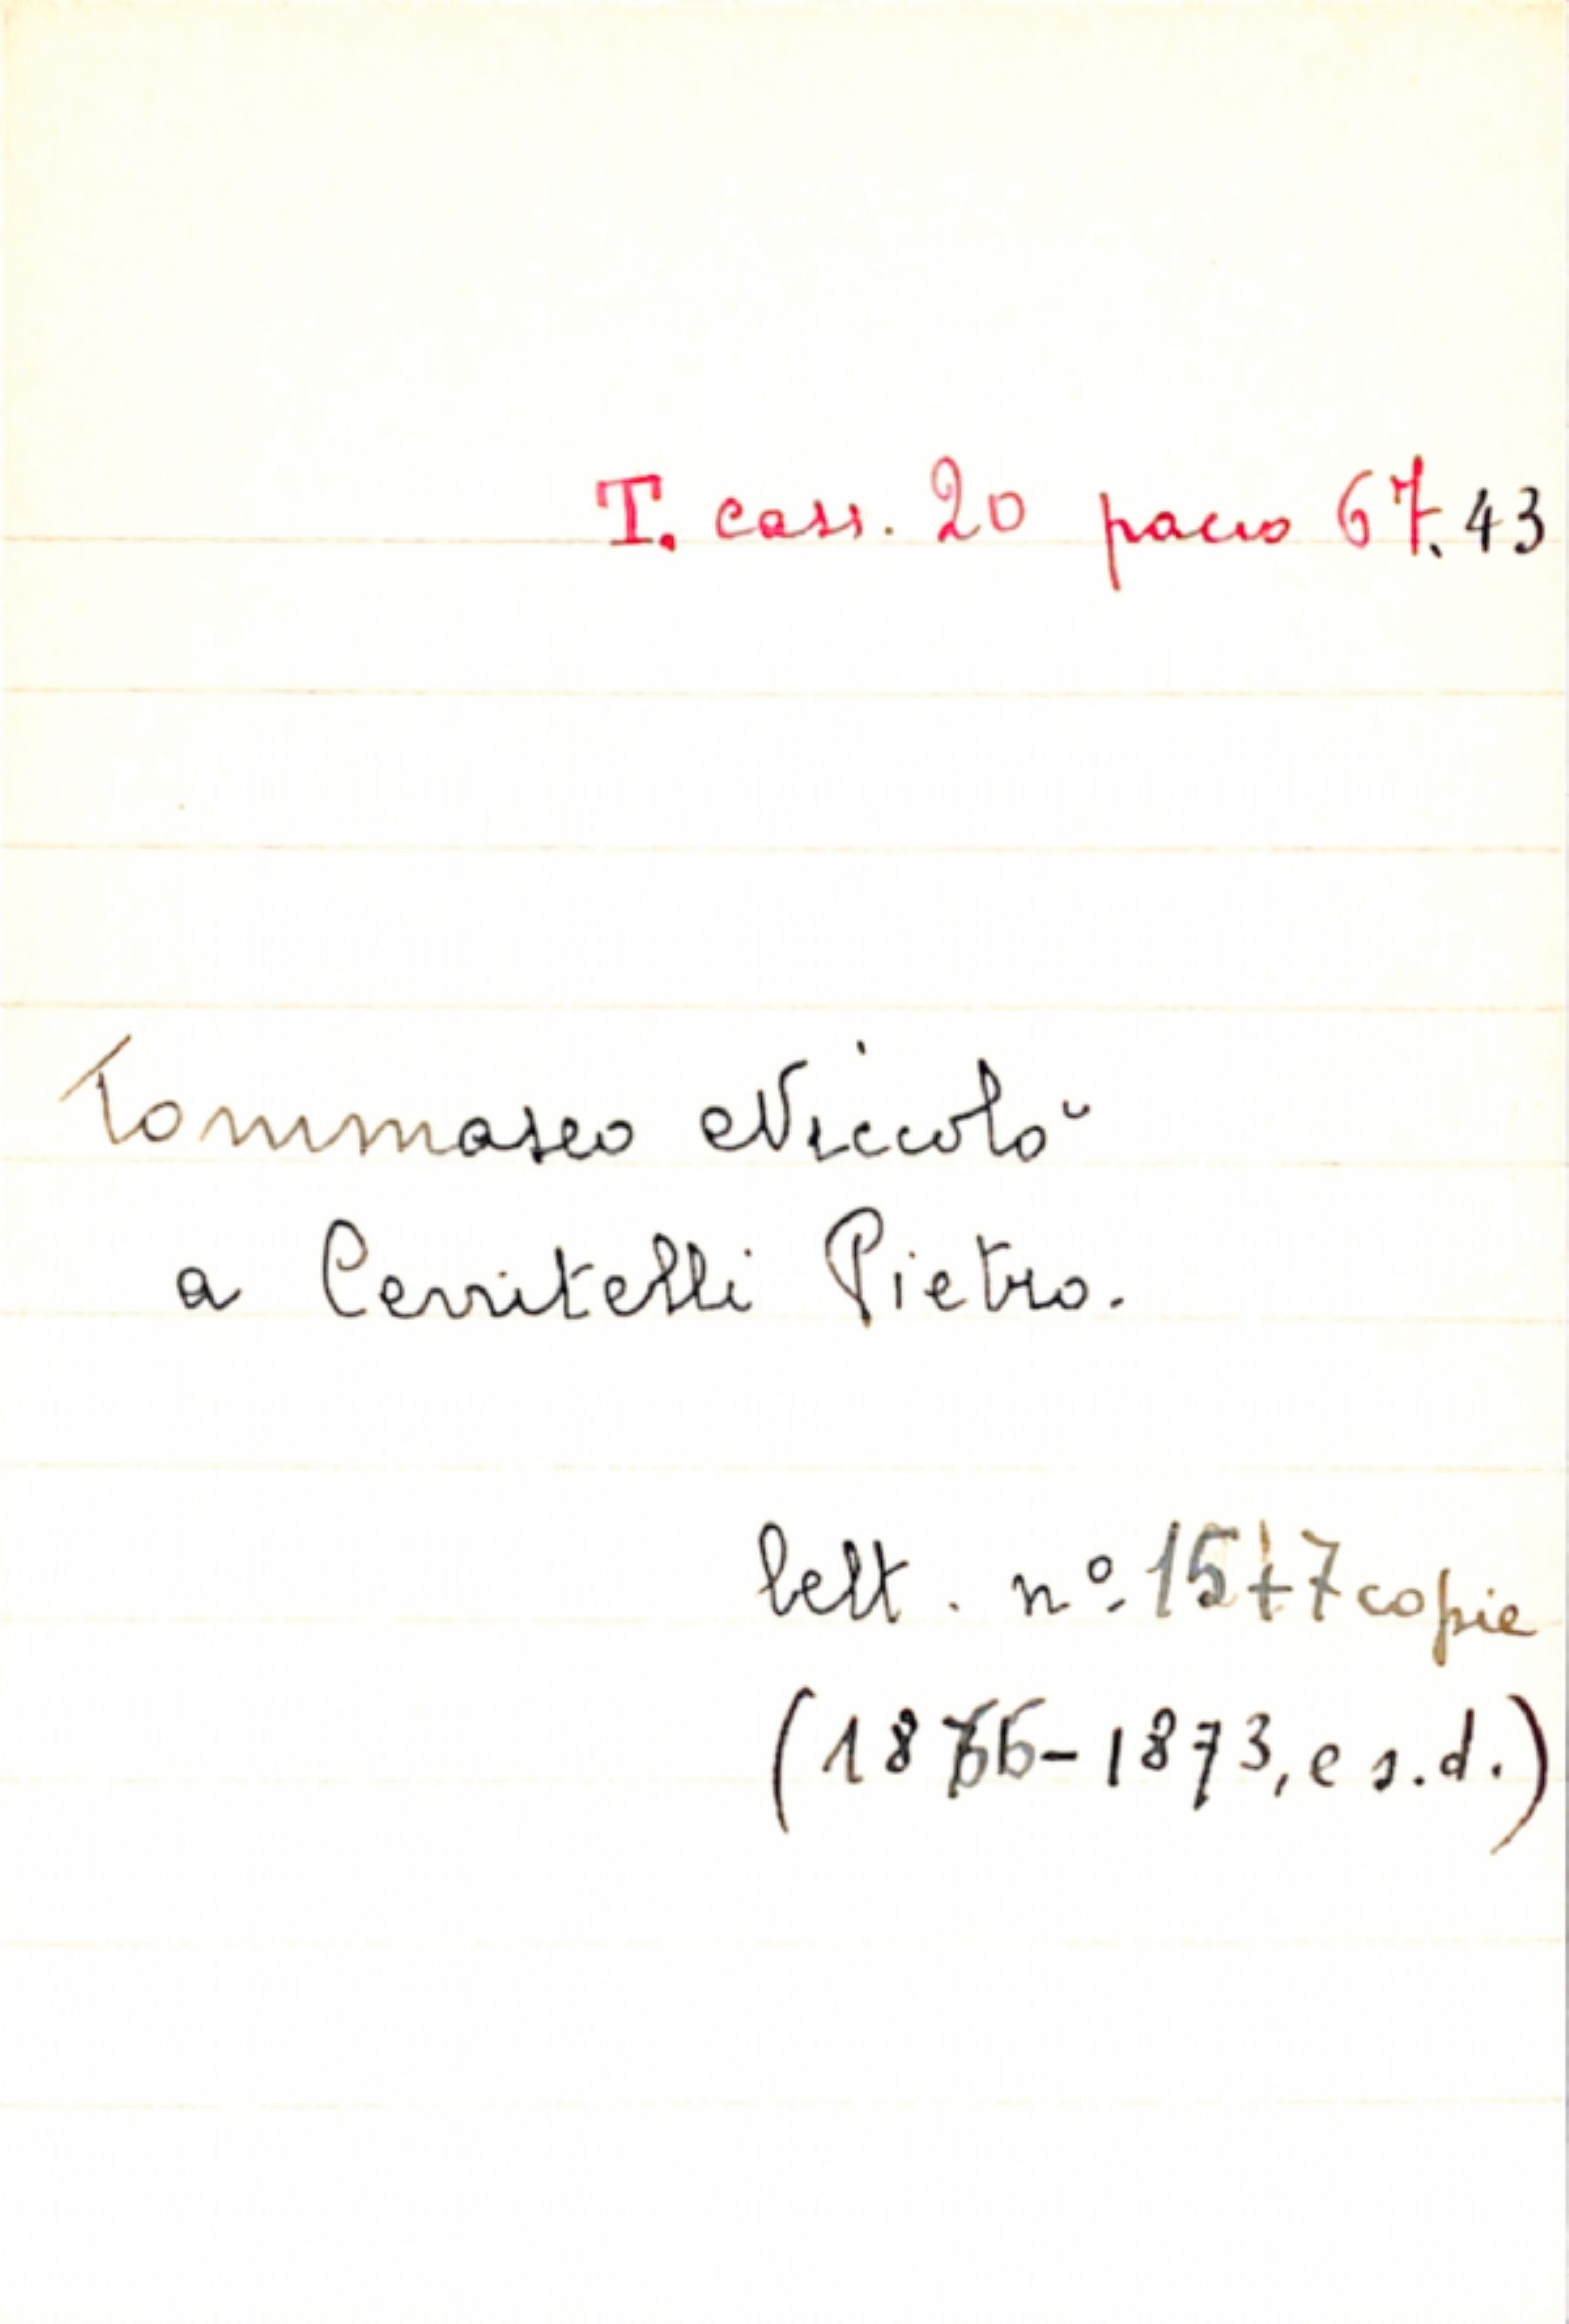 T. cass. 20 pacco 67.43
Tommaseo Niccolò
a Cerritelli Pietro.
lett. nº. 15+7 copie
(1866-1873, e s.d.)